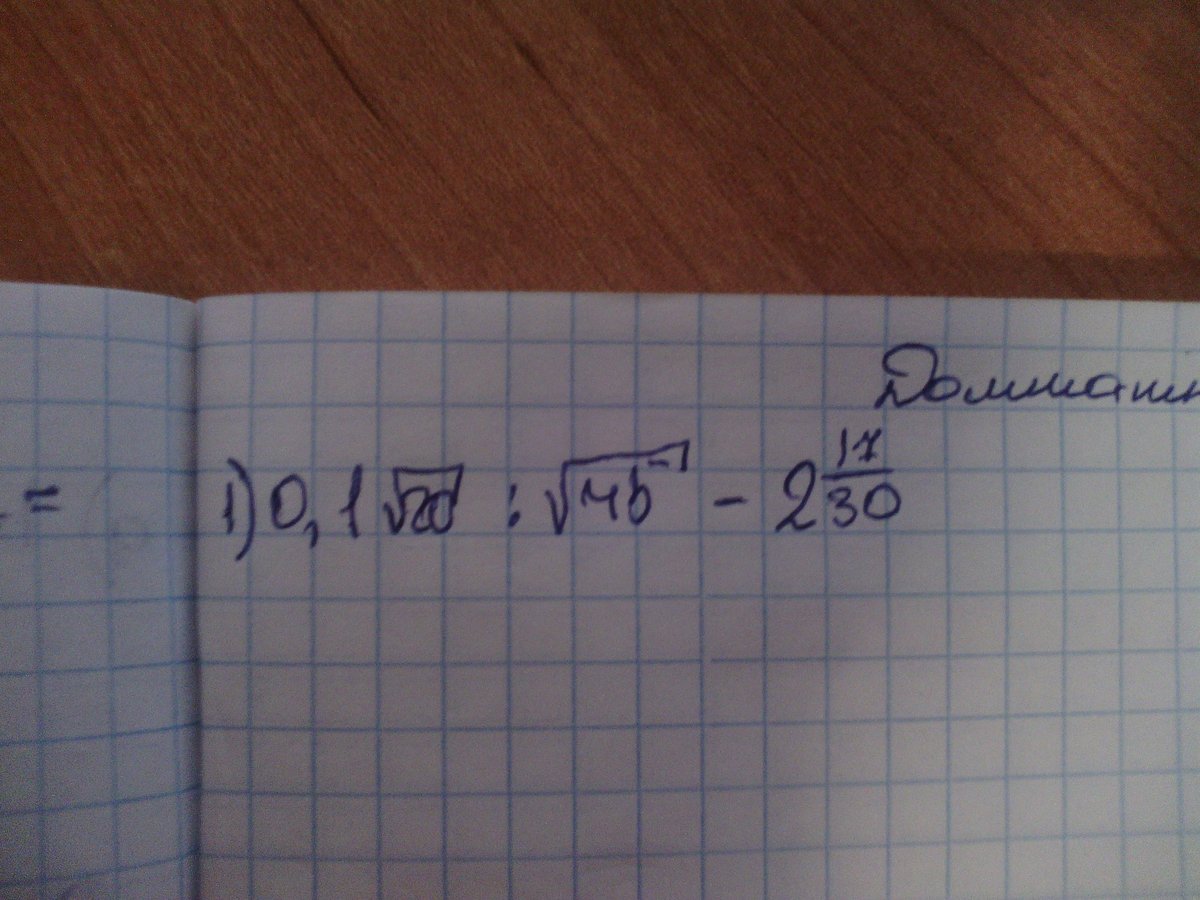 Домашн
=
1) 0,1 √20 : √45 - 2 17/30